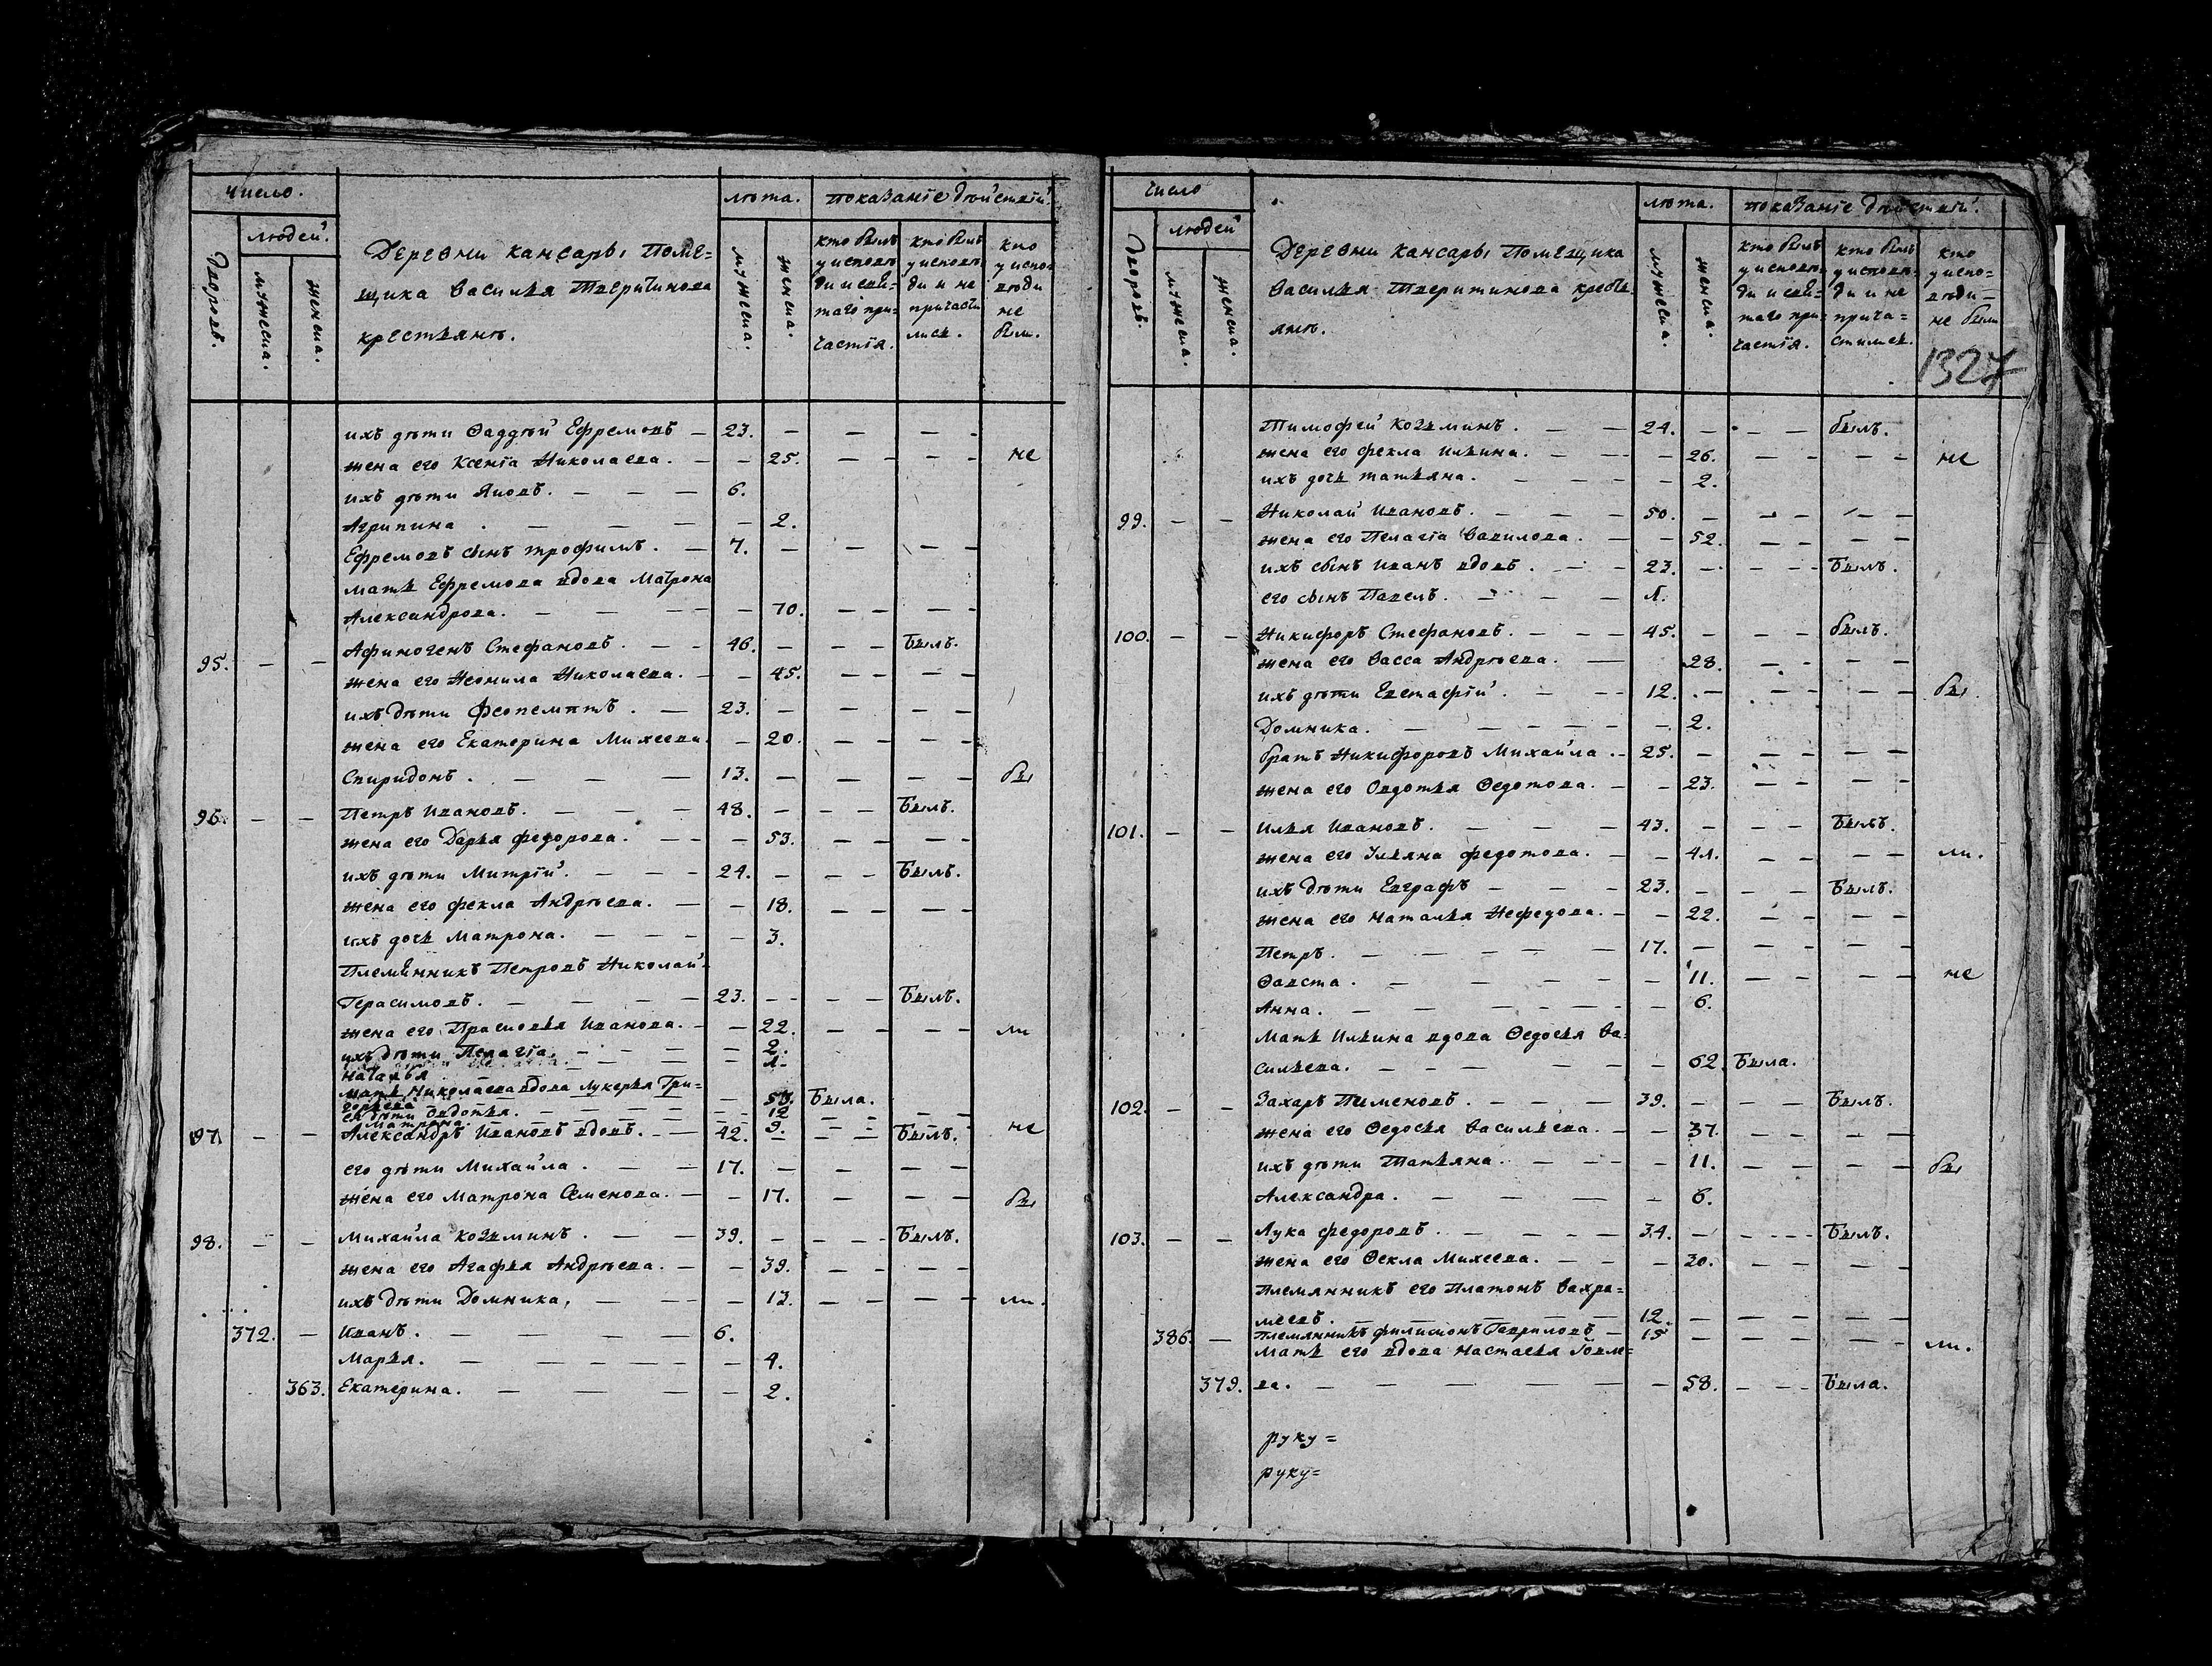 число.
людей.
дворовъ.
мужеска.
женска.
Деревни Кансары Поме=
щика Василья Тверитинова
крестьянъ.
лѣта.
мужеска.
женска.
показанїе дѣйствїй.
кто былъ
у исповѣ
ди и свя=
таго при=
частїя.
кто былъ
у исповѣ
ди и не
причасти
лися.
кто
у испо=
вѣди
не
были.
ихъ дѣти Ѳаддѣй Ефремовъ — 23. — — —
жена его Ксенїа Николаева. — — 25. — — — — не
ихъ дѣти Яковъ. — — — 6.
Агрипина . — — — — 2.
Ефремовъ сынъ трофимъ. — 7. — — — —
мать Ефремова вдова Матрона
Александрова. — — — — — 70. — — — —
95. — — Афиногенъ Стефановъ. — — 46. — — — Былъ.
жена его Неонила Николаева. — — 45. — — — —
ихъ дѣти Феопемптъ . — 23. — — — —
жена его Екатерина Михеева. — 20. — — — —
Спиридонъ . — — — 13. — — — — бы
96. — — Петръ Ивановъ. — — — 48. — — — Былъ.
жена его Дарья федорова. — — — 53. — — — —
ихъ дѣти Митрїй. — — — 24. — — — Былъ.
жена его фекла Андрѣева. — — 18. — — — —
ихъ дочь Матрона. — — — — 3.
Племѧнникъ Петровъ Николай=
Герасимовъ. — — — — 23. — — — — Былъ.
жена его Прасковья Иванова. — — 22. — — — — ли
ихъ дѣти Пелагїа. — — — — 2.
Наталья — — — — — 1.
мать Николаева вдова Лукерья Гри=
горьева — — — — 53. Была.
ея дѣти Евдотья. — — — — — 12 — — — —
Матрона. — — — — 9. — — — не
97. — — Александръ Ивановъ вдовъ. — — 42. — — — Былъ.
его дѣти Михайла . — — 17. — — — —
жена его Матрона Семенова. — — 17. — — — бы
98. — — Михайла козьминъ. — — 39. — — — — Былъ.
жена его Агафья Андрѣева. — — 39. — — — —
ихъ дѣти Домника, — — — — 13. — — — — ли.
372. — Иванъ. — — — — 6.
Марья. — — — — — — 4.
363. Екатерина. — — — — 2.
число
людей
дворовъ.
мужеска.
женска.
Деревни Кансары Помещика
Василья Тверитинова кресть=
янъ.
лѣта.
мужеска.
женска.
показанїе дѣйствїй.
кто былъ
у исповѣ=
ди и свя=
таго при=
частїя.
кто былъ
у исповѣ=
ди и не
прича=
стился.
кто
у испо=
вѣди=
не были
1327
Тимофей Козьминъ. — — 24. — — — былъ.
жена его фекла Ильина. — — — 26. — — — — не
ихъ дочь татьяна. — — — — 2.
99. — — Николай Ивановъ. — — — 50. — — — — —
жена его Пелагїа Вавилова. — — 52. — — — —
ихъ сынъ Иванъ вдовъ. — — 23. — — — — Былъ.
его сынъ Павелъ. — — — 1.
100. — — Никифоръ Стефановъ. — — — 45. — — — былъ.
жена его Васса Андрѣева. — 28. — — — —
ихъ дѣти Евстафїй. — — — 12. — — — — — бы.
Домника. — — — — — — 2.
братъ Никифоровъ Михайла. — 25. — — — — —
жена его Овдотья Ѳедотова. — — 23. — — — —
101. — — Илья Ивановъ. — — — 43. — — — Былъ.
жена его Ульяна федотова. — — 41. — — — — ли.
ихъ дѣти Евграфъ — — — 23. — — — Былъ.
жена его Наталья Нефедова. — — 22. — — — —
Петръ. — — — — — 17. — — — — —
Ѳавста. — — — — — 11. — — — — не
Анна. — — — — — — — 6.
Мать Ильина вдова Ѳедосья Ва=
сильева. — — — — — — 62. Была.
102. — — Захаръ Пименовъ. — — — 39. — — — Былъ.
жена его Ѳедосья Васильева. — — 37. — — — —
ихъ дѣти Татьяна. — — — — 11. — — — — бы
Александра. — — — — 6.
103. — — Лука федоровъ. — — — — 34. — — — — Былъ.
жена его Ѳекла Михеева. — — — 30. — — — —
Племянникъ его Платонъ Вахра=
меевъ. — — — — — 12. — — — — —
386. — Племянникъ филимонъ Гавриловъ — 15 — — — — — ли.
Мать его вдова Настасья
379. ва. — — — — — — — 58. — — — Была.
руку=
руку=